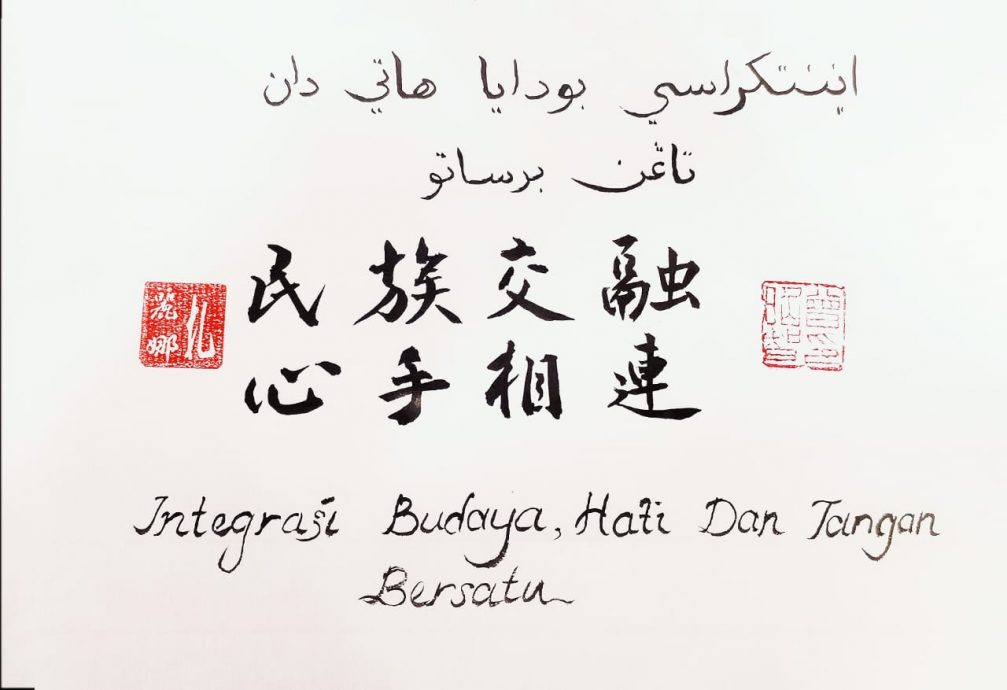 ايننتكراسي بودايا هاتي دان
تاڠن برساتو
民族交融
心手相連
麗娜
Integrasi Budaya, Hati Dan Tangan
Bersatu